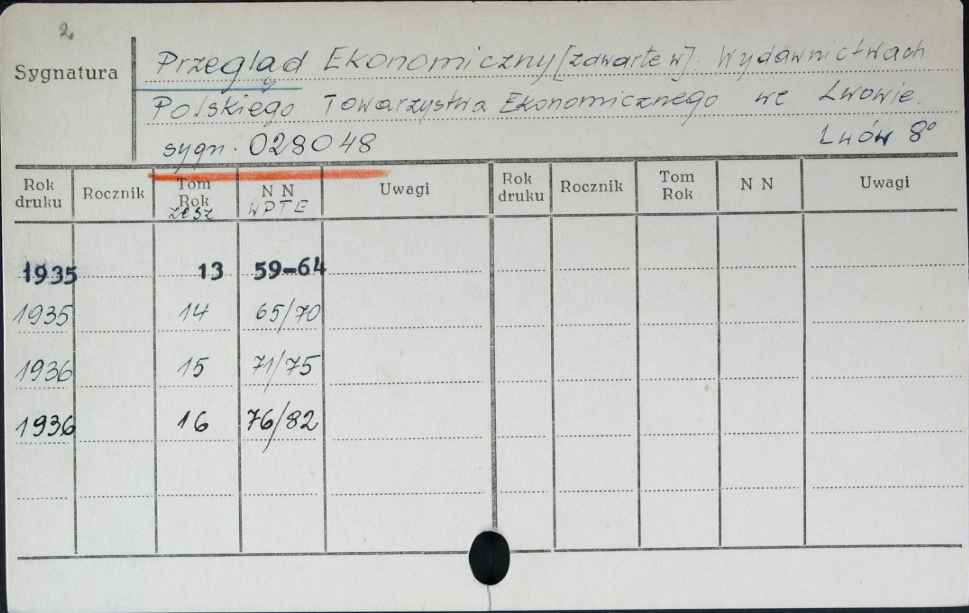 2
Sygnatura
Przegląd Ekonomiczny [zawarte w]. Wydawnictwach
Polskiego Towarzystwa Ekonomicznego we Lwowie.
sygn. 028048 Lwów 8°
Rok druku Rocznik Tom Rok zesz N N WPTE Uwagi Rok druku Rocznik Tom Rok N N Uwagi
1935 13 59-64
1935 14 65/70
1936 15 71/75
1936 16 76/82